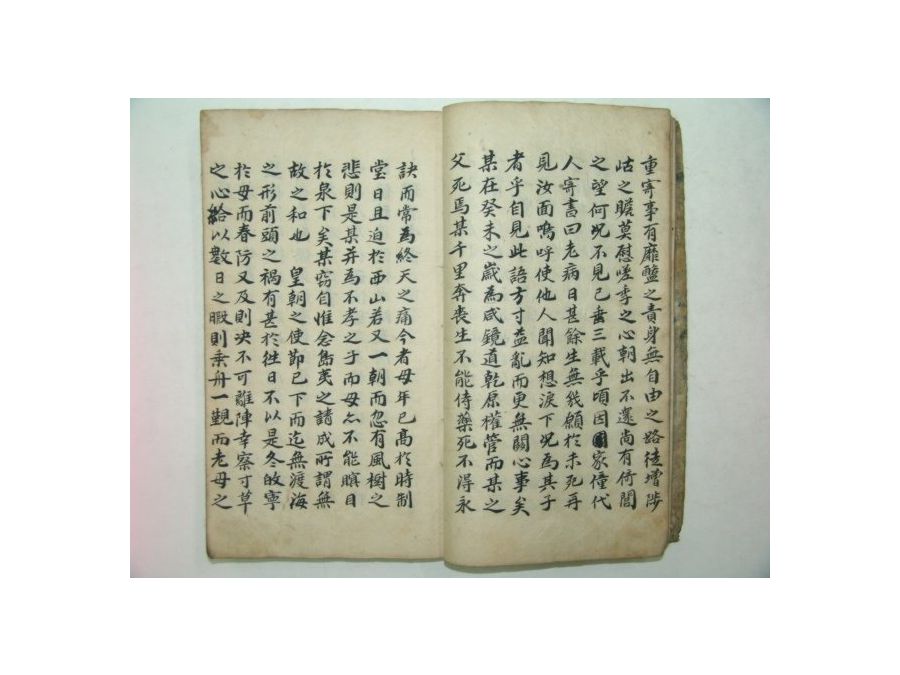 重寄事有靡盬之責身無自由之路徒增陟
岵之瞻莫慰嗟季之心朝出不還尚有倚閭
之望何况不見已垂三載乎頃因家僮代
人寄書曰老病日甚餘生無幾願於未死再
見汝面嗚呼使他人聞知想淚下况為其子
者乎自見此語方寸益亂而更無關心事矣
某在癸未之歲為咸鏡道乾原權管而某之
父死焉某千里奔喪生不能侍藥死不得永
訣而常為終天之痛今者母年已高於時制
堂日且迫於西山若又一朝而忽有風樹之
悲則是某并為不孝之子而母亦不能瞑目
於泉下矣某窃自惟念島夷之請成所謂無
故之和也 皇朝之使節已下而迄無渡海
之形前頭之禍有甚於徃日不以是冬故寧
於母而春防又及則决不可離陣幸察寸草
之心給以數日之暇則乘舟一觐而老母之